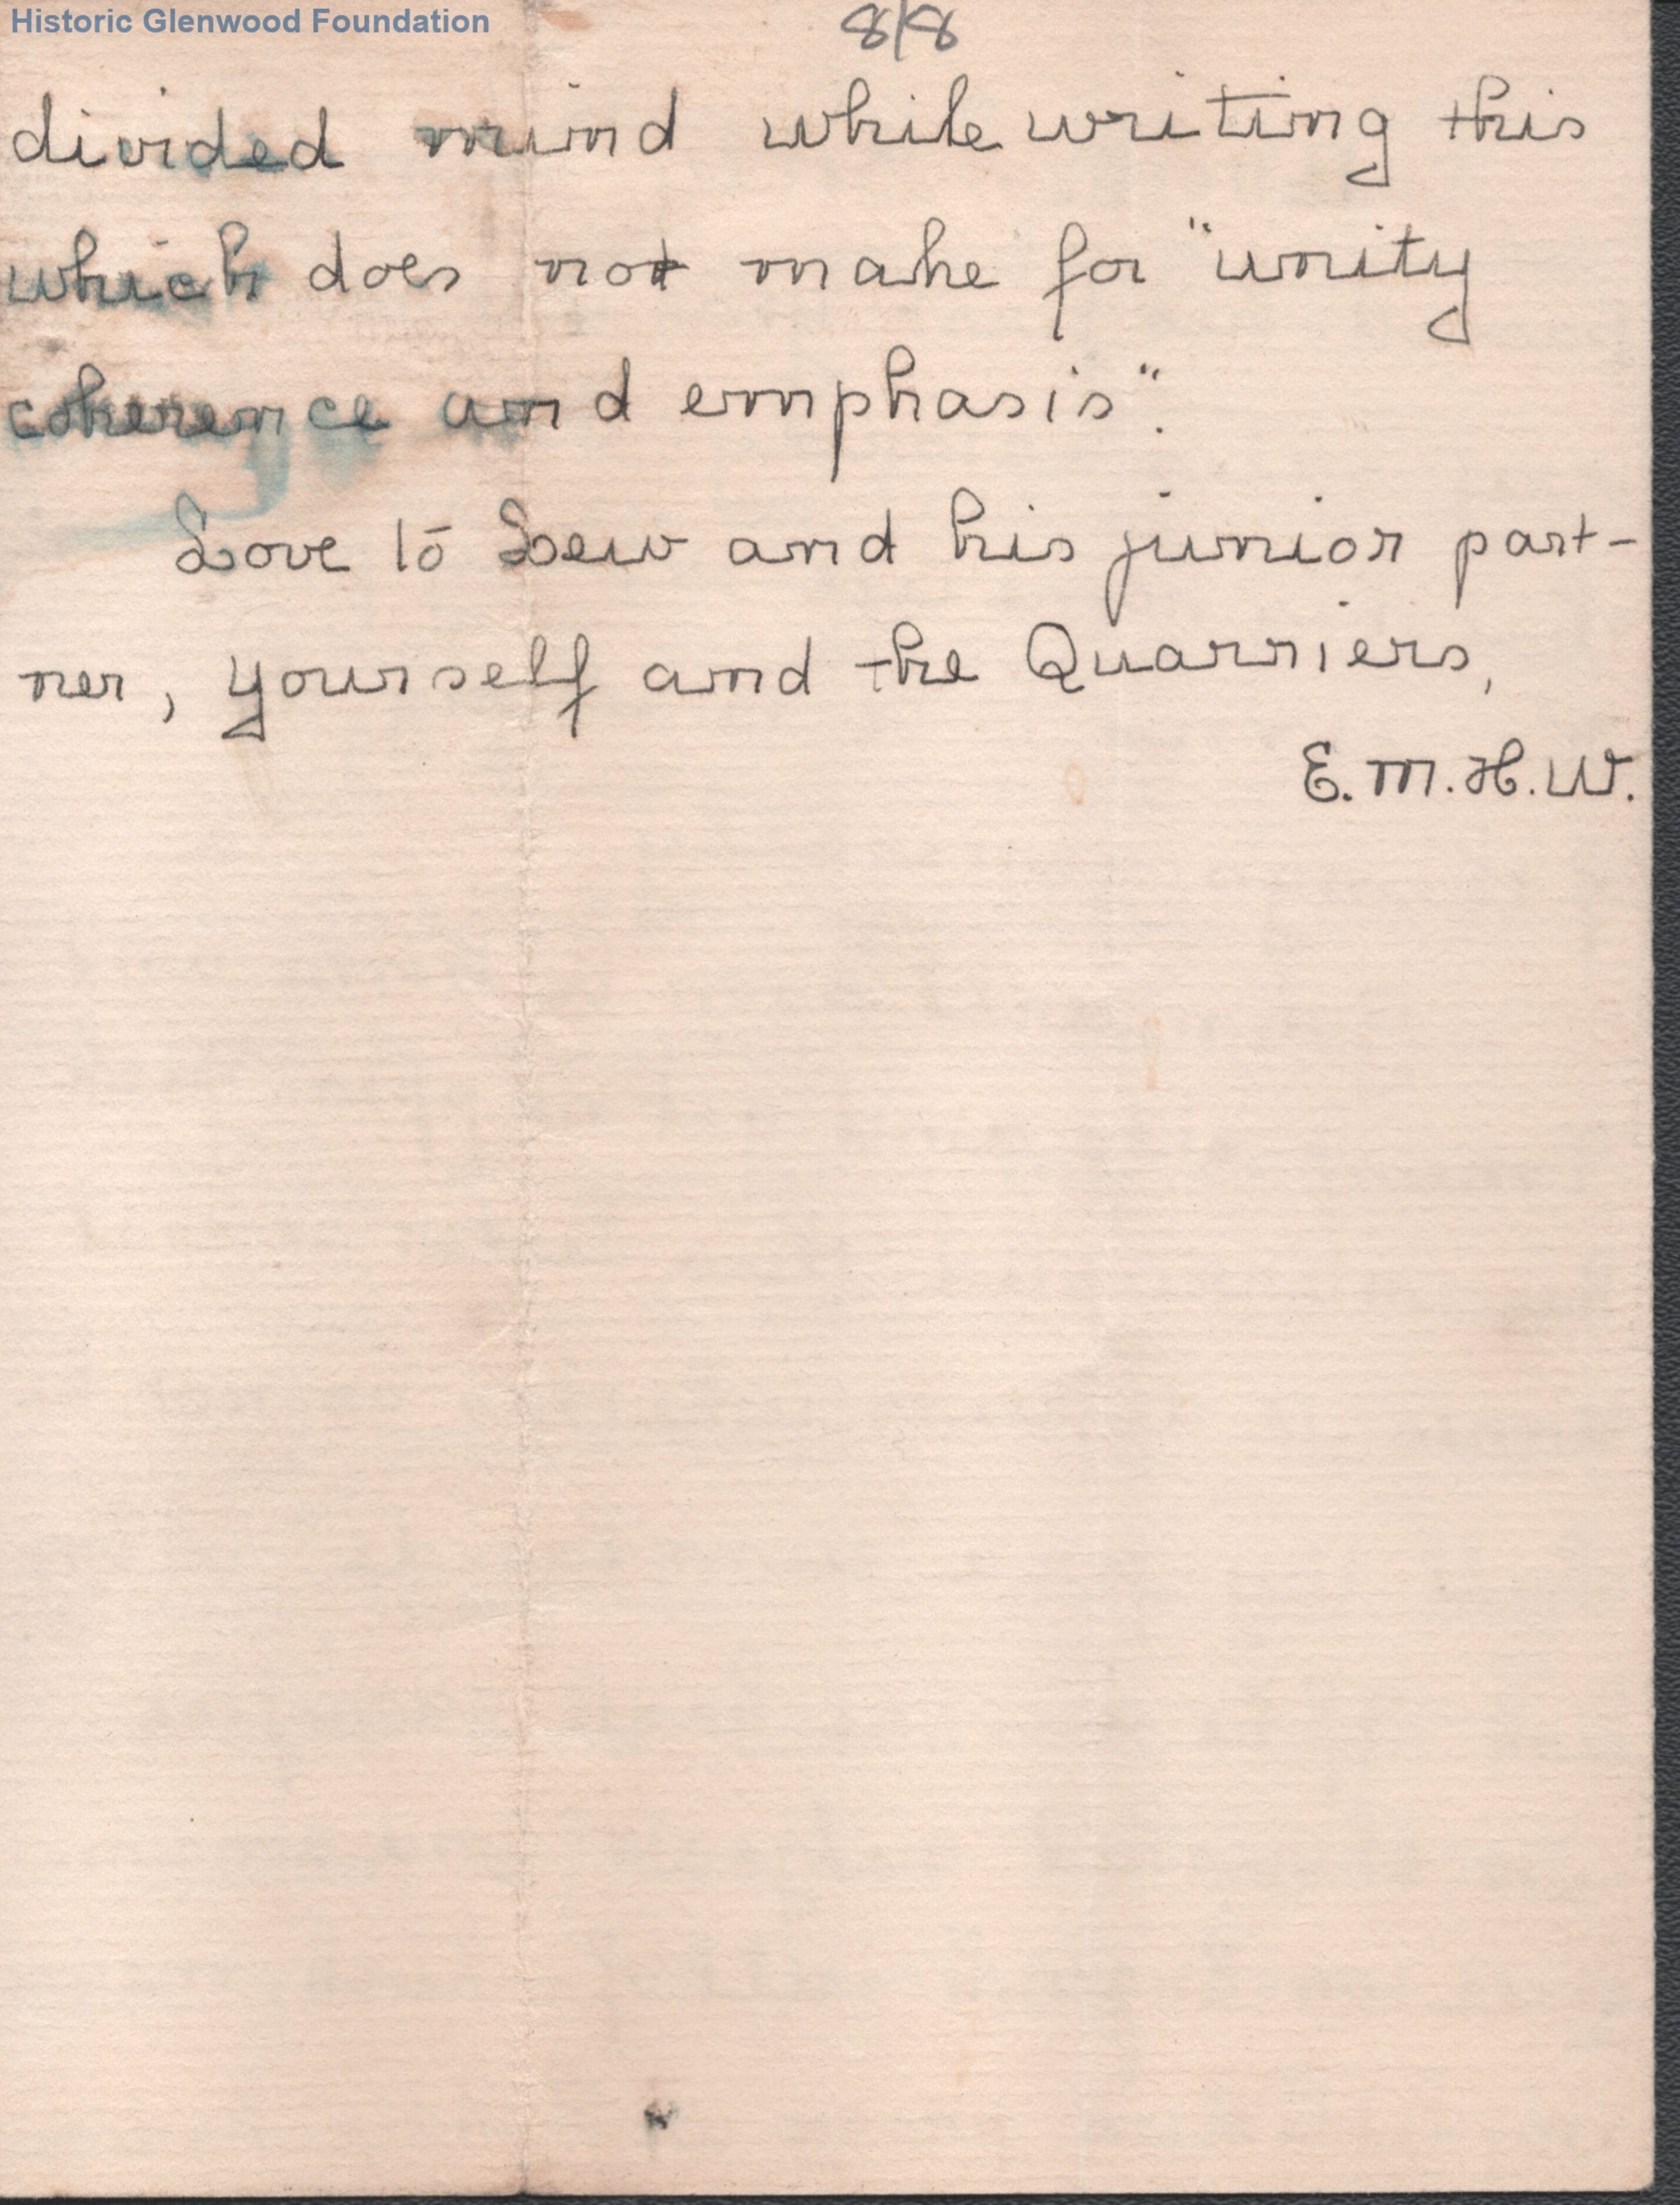 Historic Glenwood Foundation
8/8
divided mind while writing this
which does not make for "unity
coherence and emphasis".
Love to Lew and his junior part-
ner, yourself and the Quarriers,
E.M.H.W.